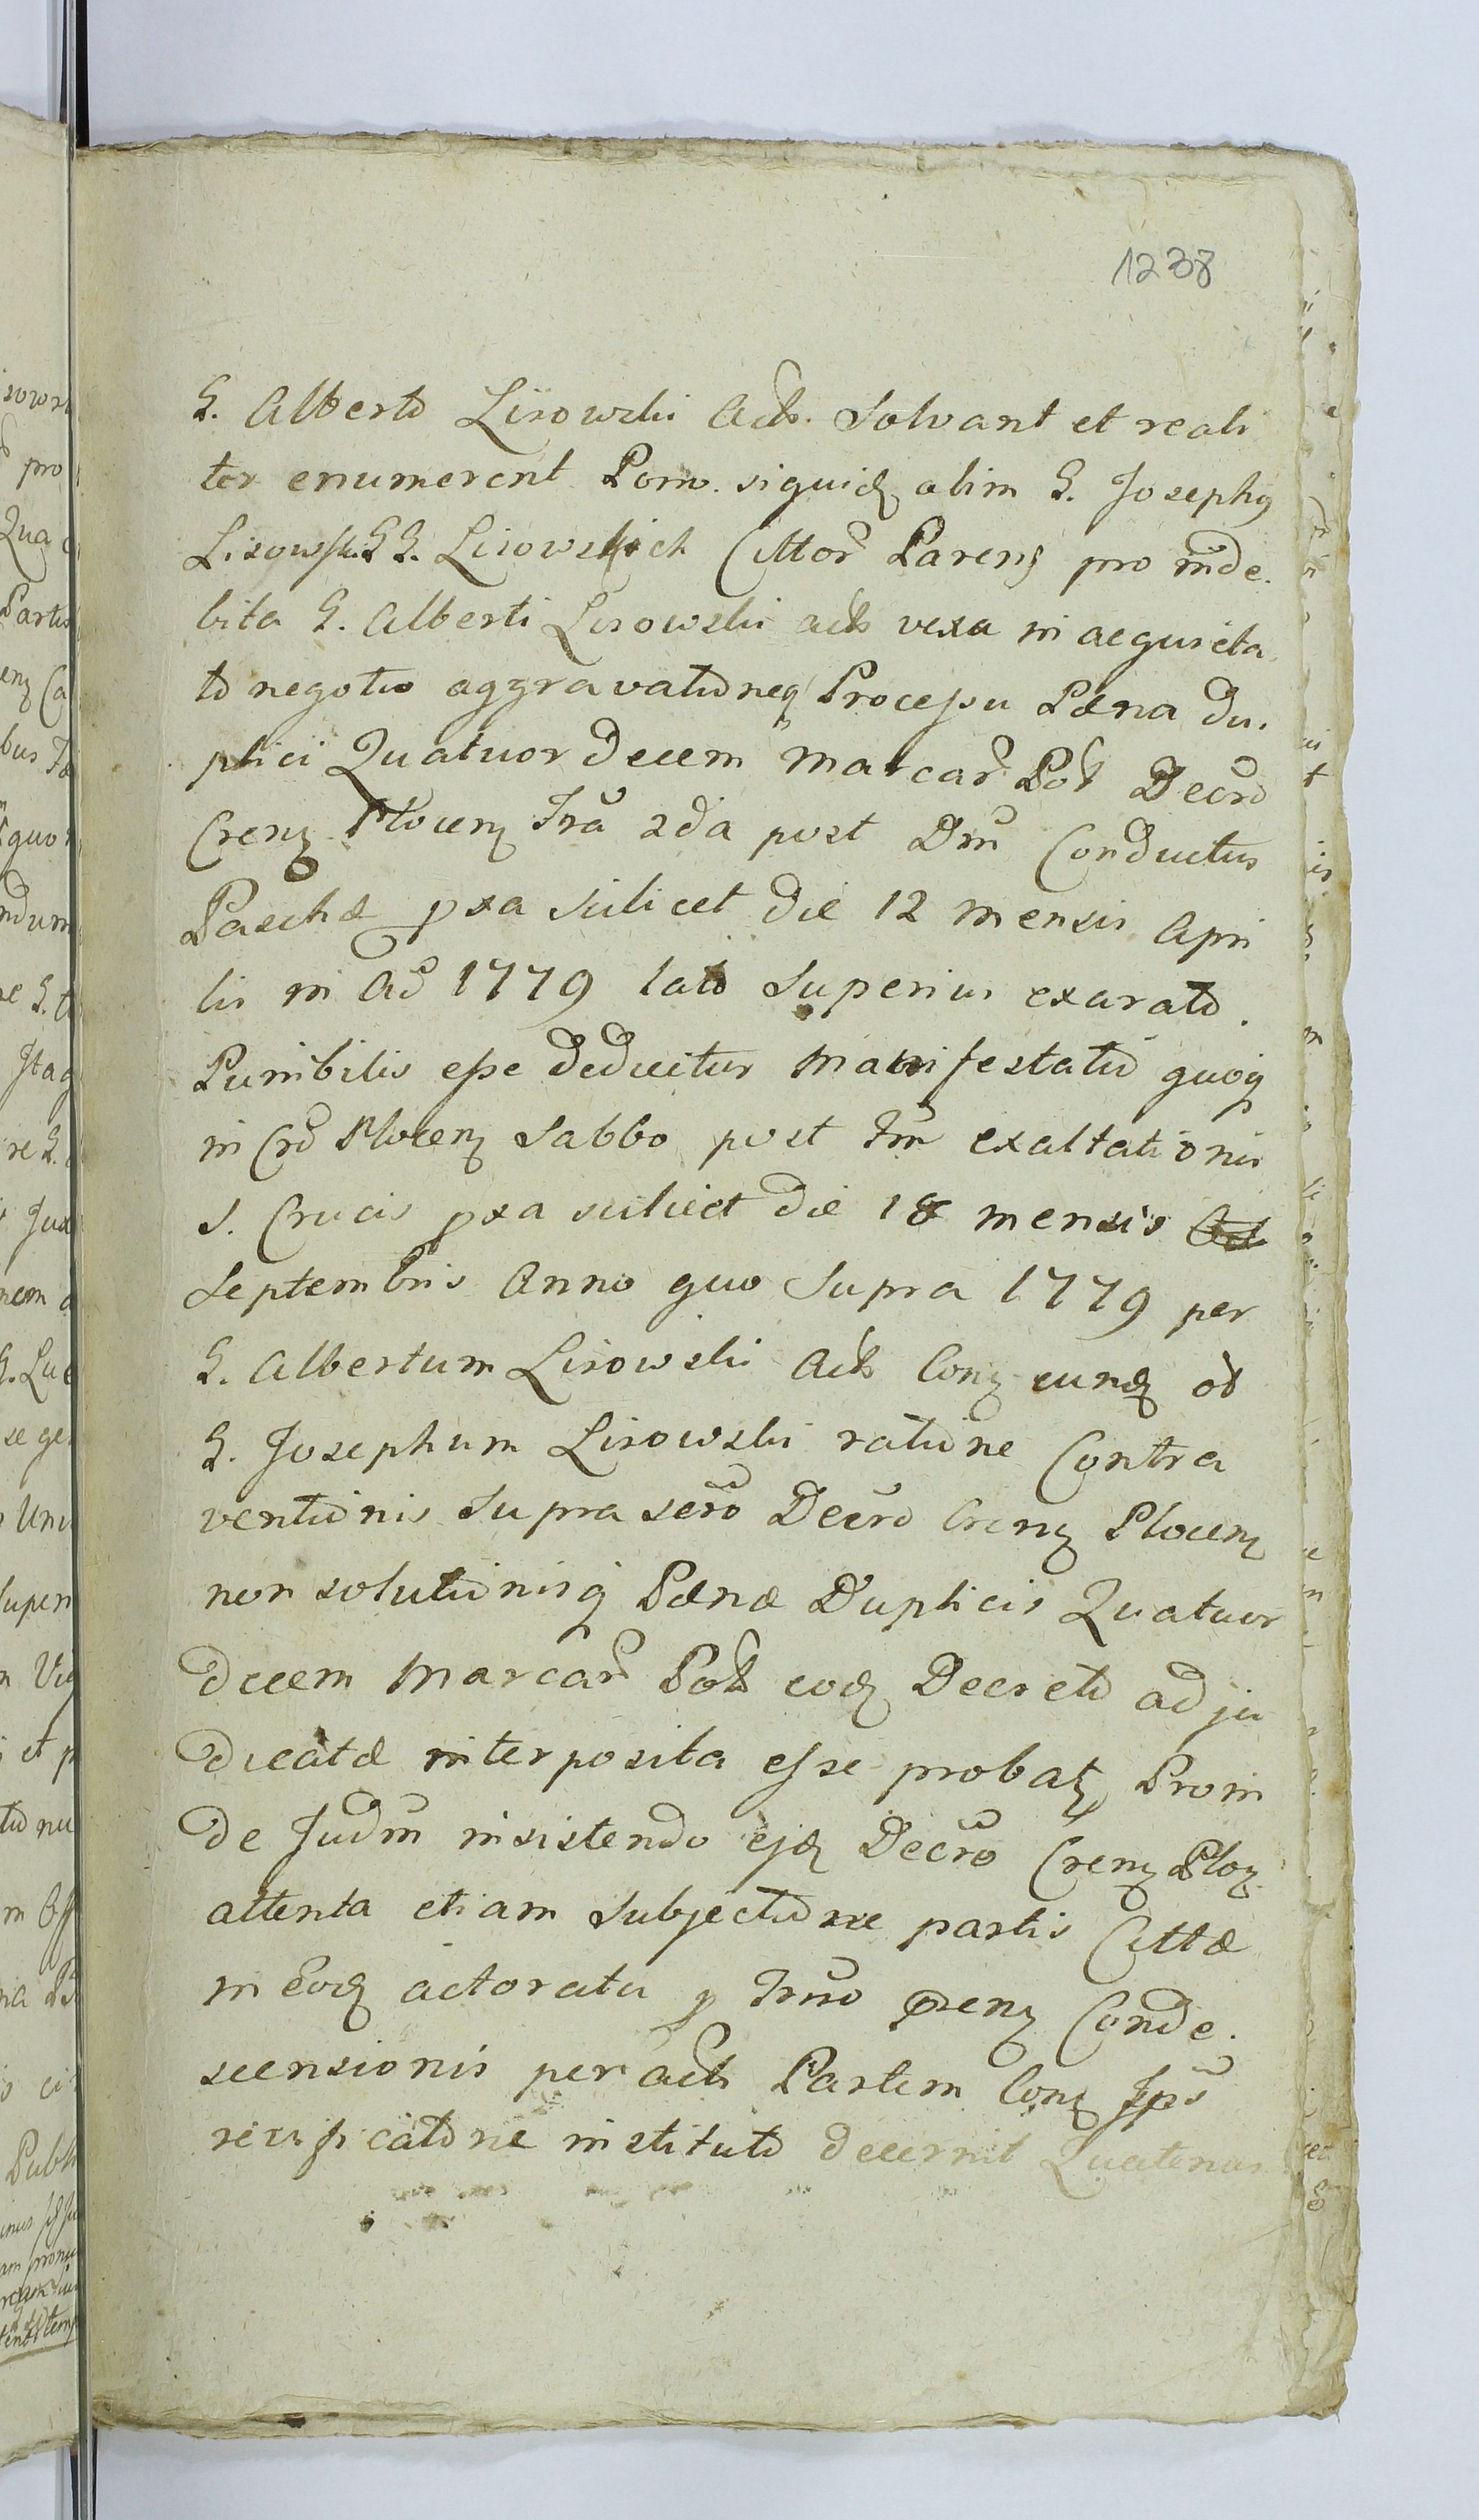 1238
G. Alberto Lisowski Act. Solvant et reali
ter enumerent Porro. siquid olim G. Josephg
Lisowski GG. Lisowskich Cittor Pareng pro inde.
bita G. Alberti Lisowski act vexa in aequieta
to negotio aggravationeq Processu Pæna du.
plici Quatuor decem Marcar Pol Decro
Creng Ploceng Fra 2da post Dm Conductus
Paschæ pxa scilicet die 12 mensis Apri
lis in Ao 1779 lato Superius exarato.
Punibilis esse deducitur Manifestatio quoq
in Cro Ploceng Sabbo post Fm exaltationis
S. Crucis pxa scilicet die 18 mensis
Septembris Anno quo Supra 1779 per
G. Albertum Lisowski Act Cong eund ob
G. Josephum Lisowski ratione Contra
ventionis Supra sero Decro Creng Ploceng
non solutionisq Pænæ Duplicis Quatuor
decem Marcar Pol eod Decreto adju
dicatæ interposita esse probat Proin
de Judm insistendo ejd Decro Creng Plog
attenta etiam Subjectione partis Cittæ
in eod actoratu p Fmno pneng Conde.
scensionis per act Partem Cong
rificatione instituto decernit Quatenus